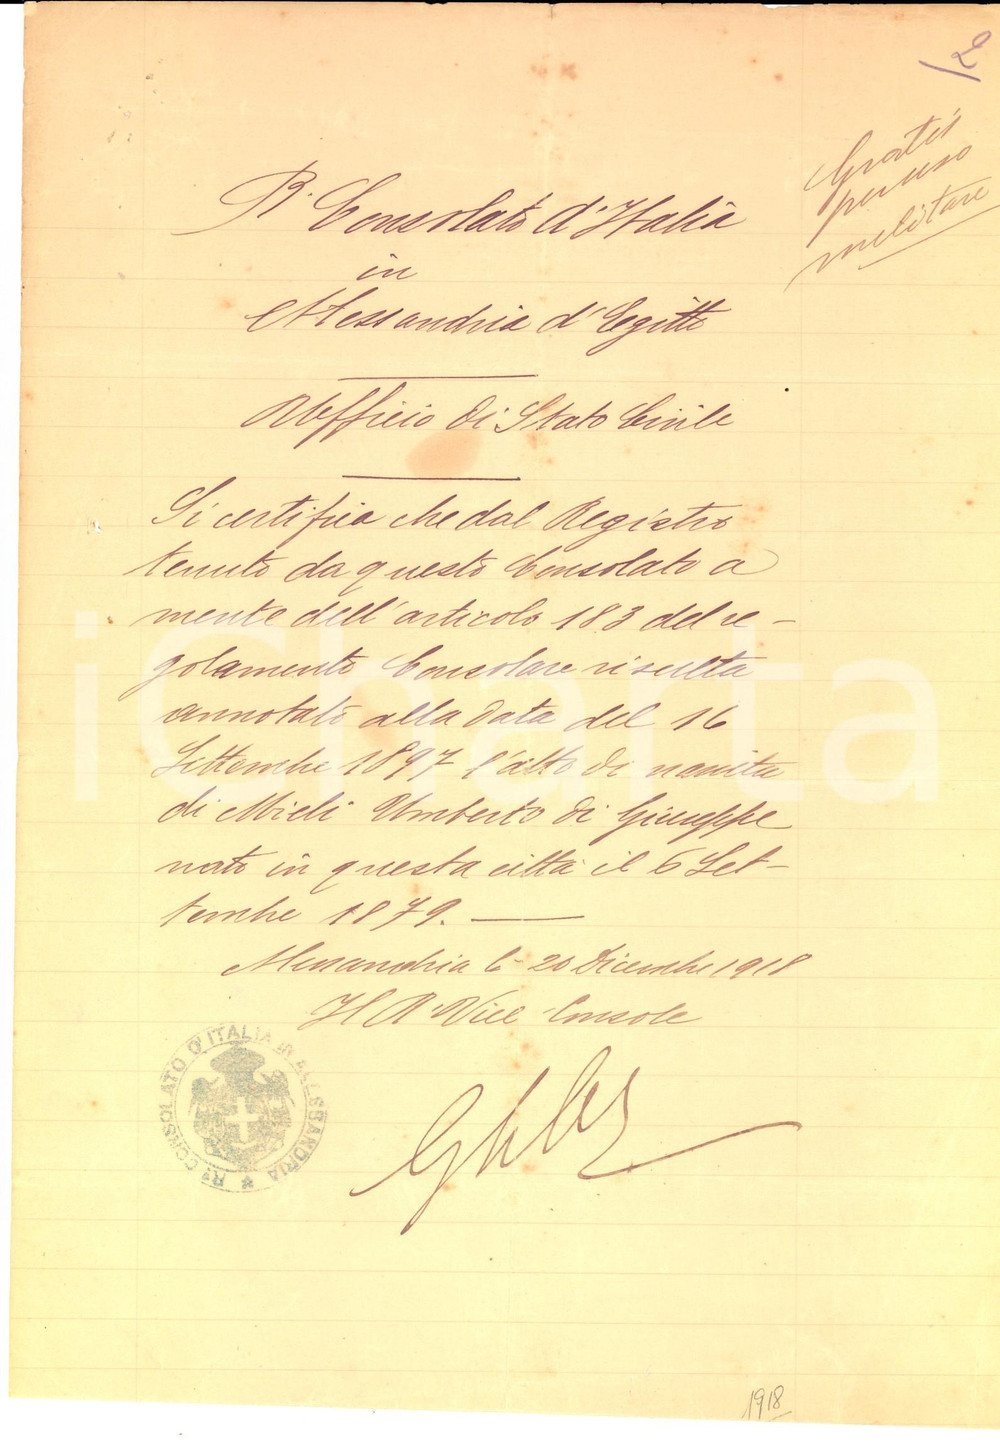 2
Gratis
per uso
militare
R. Consolato d'Italia
in
Alessandria d'Egitto
Ufficio di Stato Civile
Si certifica che dal Registro
tenuto da questo Consolato a
mente dell'articolo 183 del re-
golamento Consolare risulta
annotato alla data del 16
Settembre 1897 l'atto di nascita
di Mieli Umberto di Giuseppe
nato in questa città il 6 Set-
tembre 1879.
Alessandria 20 Dicembre 1918
Il R. Vice Console
R.º CONSOLATO D'ITALIA IN ALESSANDRIA
1918
iCharta